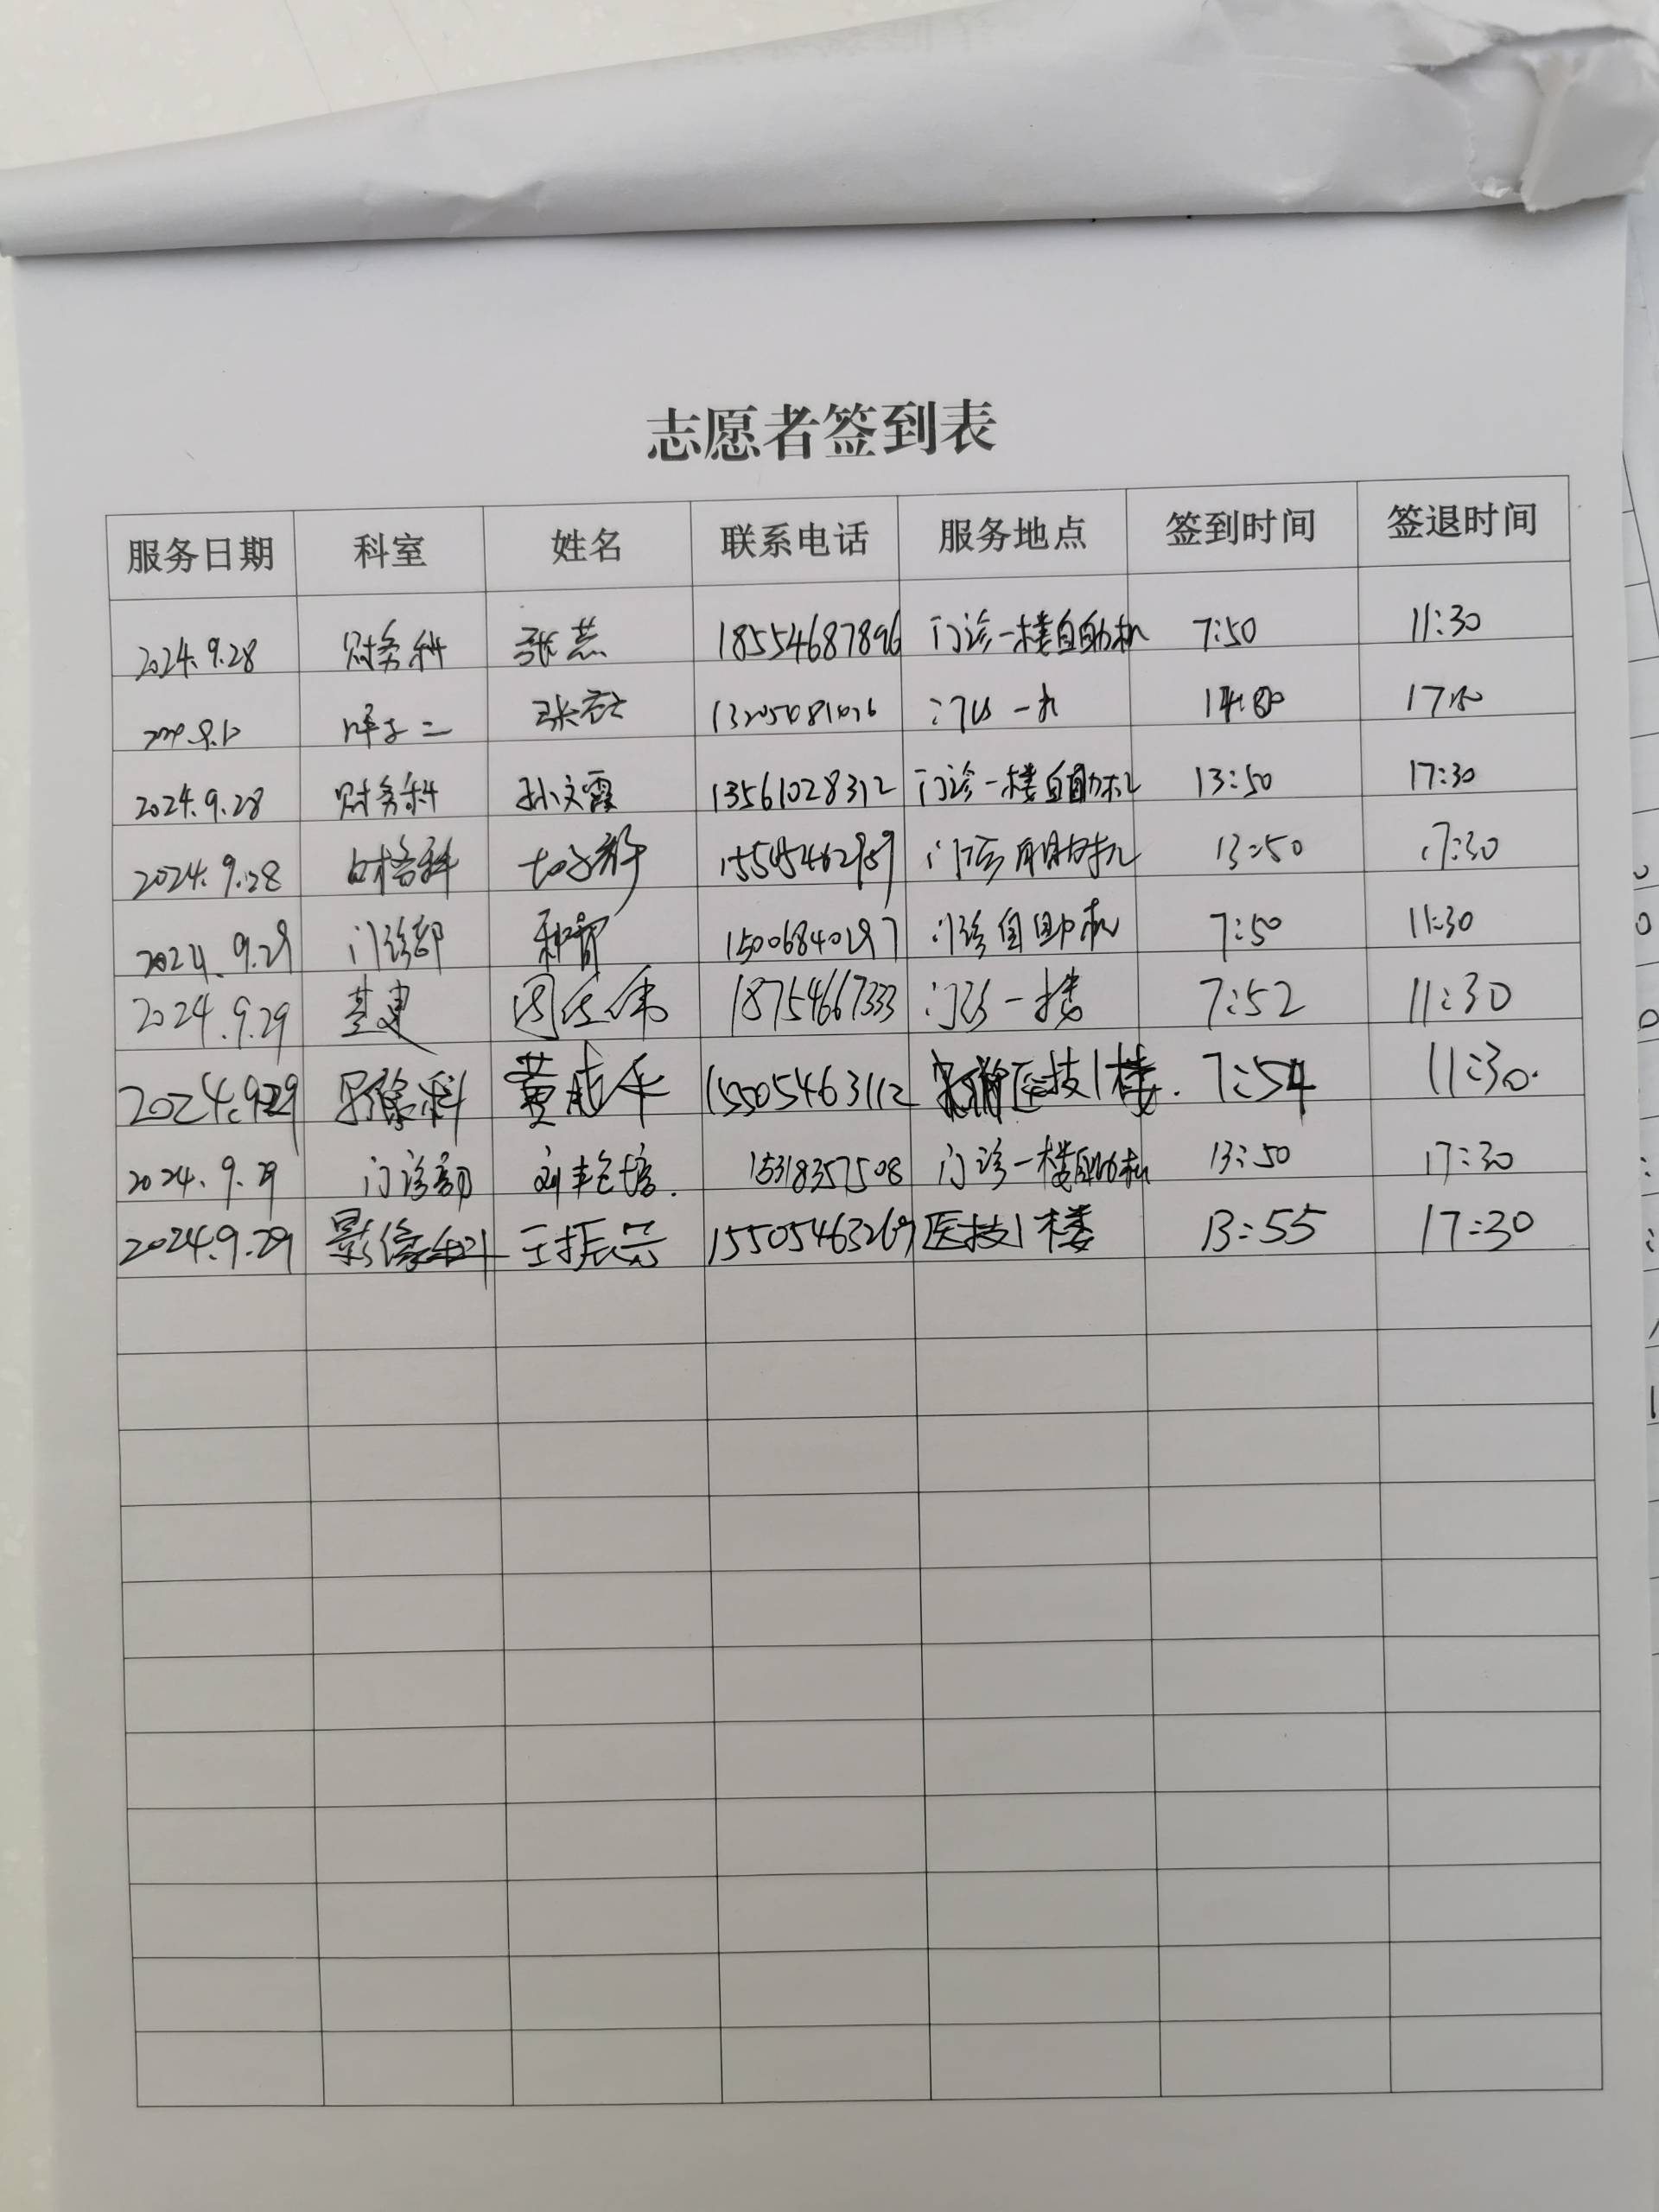 志愿者签到表
服务日期 科室 姓名 联系电话 服务地点 签到时间 签退时间
2024.9.28 财务科 张燕 18554687896 门诊一楼自助机 7:50 11:30
张 一
2024.9.28 财务科 孙文霞 13561028312 门诊一楼自助机 13:50 17:30
2024.9.28 财务科 门诊自助机 13:50 17:30
2024.9.29 门诊部 15006840297 门诊自助机 7:50 11:30
2024.9.29 基建 周 伟 18754667333 门诊一楼 7:52 11:30
2024.9.29 影像科 黄成 15505463112 医技1楼. 7:54 11:30.
2024.9.29 门诊部 刘 15318357508 门诊一楼自助机 13:50 17:30
2024.9.29 影像科 王振 15505463269 医技1楼 13:55 17:30